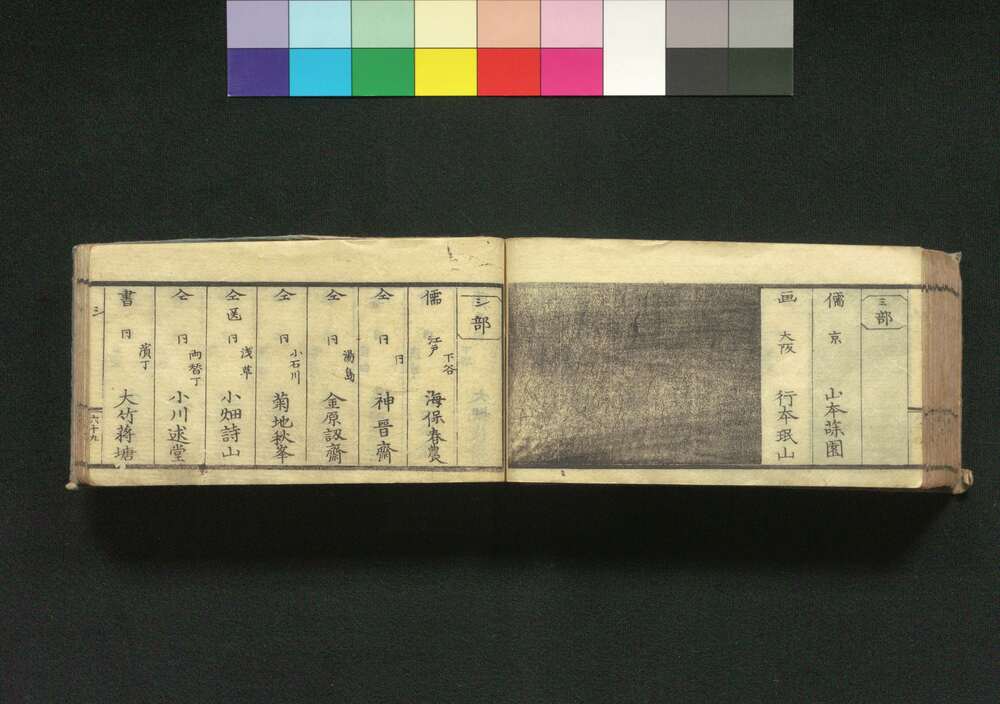 ミ部
儒 京 山本園
画 大阪 行本珉山
シ部
儒 江戸 下谷 海保春農
仝 同 同 神晋齋
仝 同 湯島 金原訒齋
仝 同 小石川 菊地秋峯
仝医 同 浅草 小畑詩山
仝 同 両替丁 小川述堂
書 同 濱丁 大竹蒋塘
シ
六十九